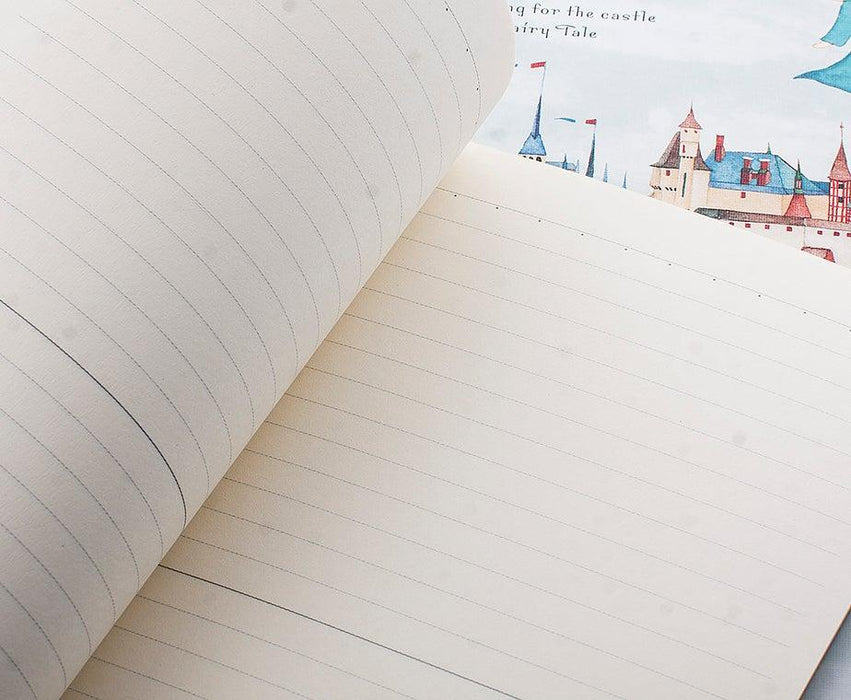 ng for the castle
airy Tale